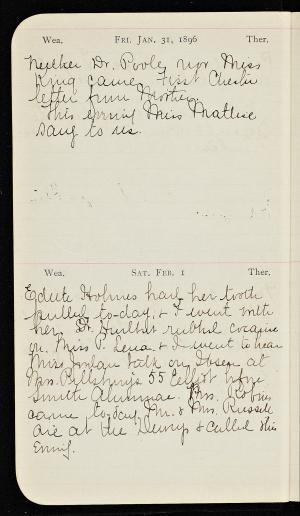 Wea. FRI. JAN. 31, 1896 Ther.
Neither Dr. Poole nor Miss
King came. First Chester
letter from Mother.
This evening Miss
sang to us.
Wea. SAT. FEB. 1 Ther.
Edith Holmes had her tooth
pulled to-day, & I went with
her. Dr. Hurlbut rubbed cocaine
on. Miss P. Lena & I went to hear
Miss talk on Ibsen at
Mrs. Pillsbury's 55 for
Smith Alumnae. Mrs.
came to-day. Mr. & Mrs. Russell
are at the & called this
Evening.